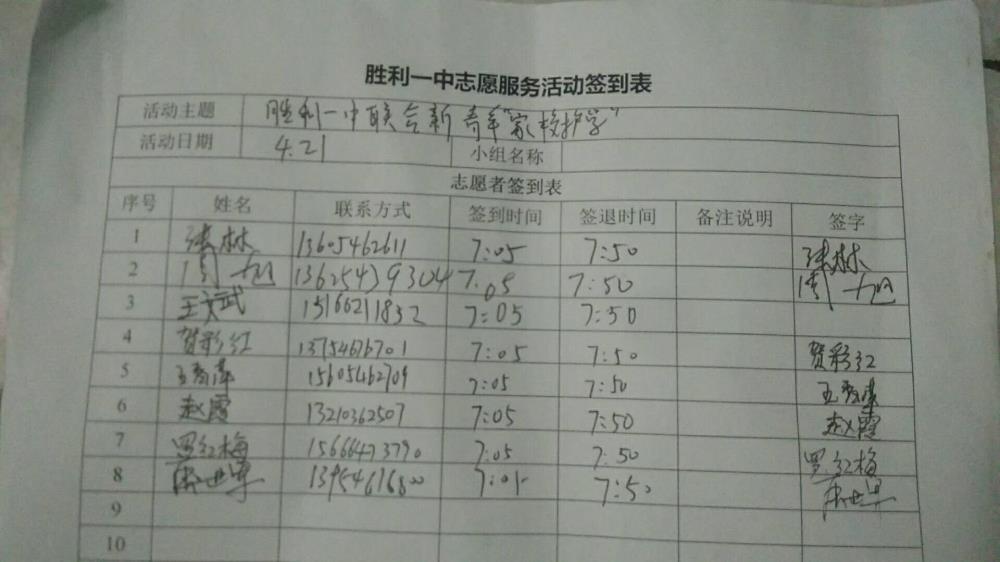 胜利一中志愿服务活动签到表
活动主题 胜利一中联合新青年"家校护学"
活动日期 4.21 小组名称
志愿者签到表
序号 姓名 联系方式 签到时间 签退时间 备注说明 签字
1 张林 13605462611 7:05 7:50 张林
2 周旭 13625439304 7:05 7:50 周旭
3 王文武 15166211832 7:05 7:50
4 贺彩红 13754676701 7:05 7:50 贺彩红
5 15605462709 7:05 7:50
6 赵霞 13210362507 7:05 7:50 赵霞
7 罗红梅 15666473790 7:05 7:50 罗红梅
8 13954616800 7:50
9
10